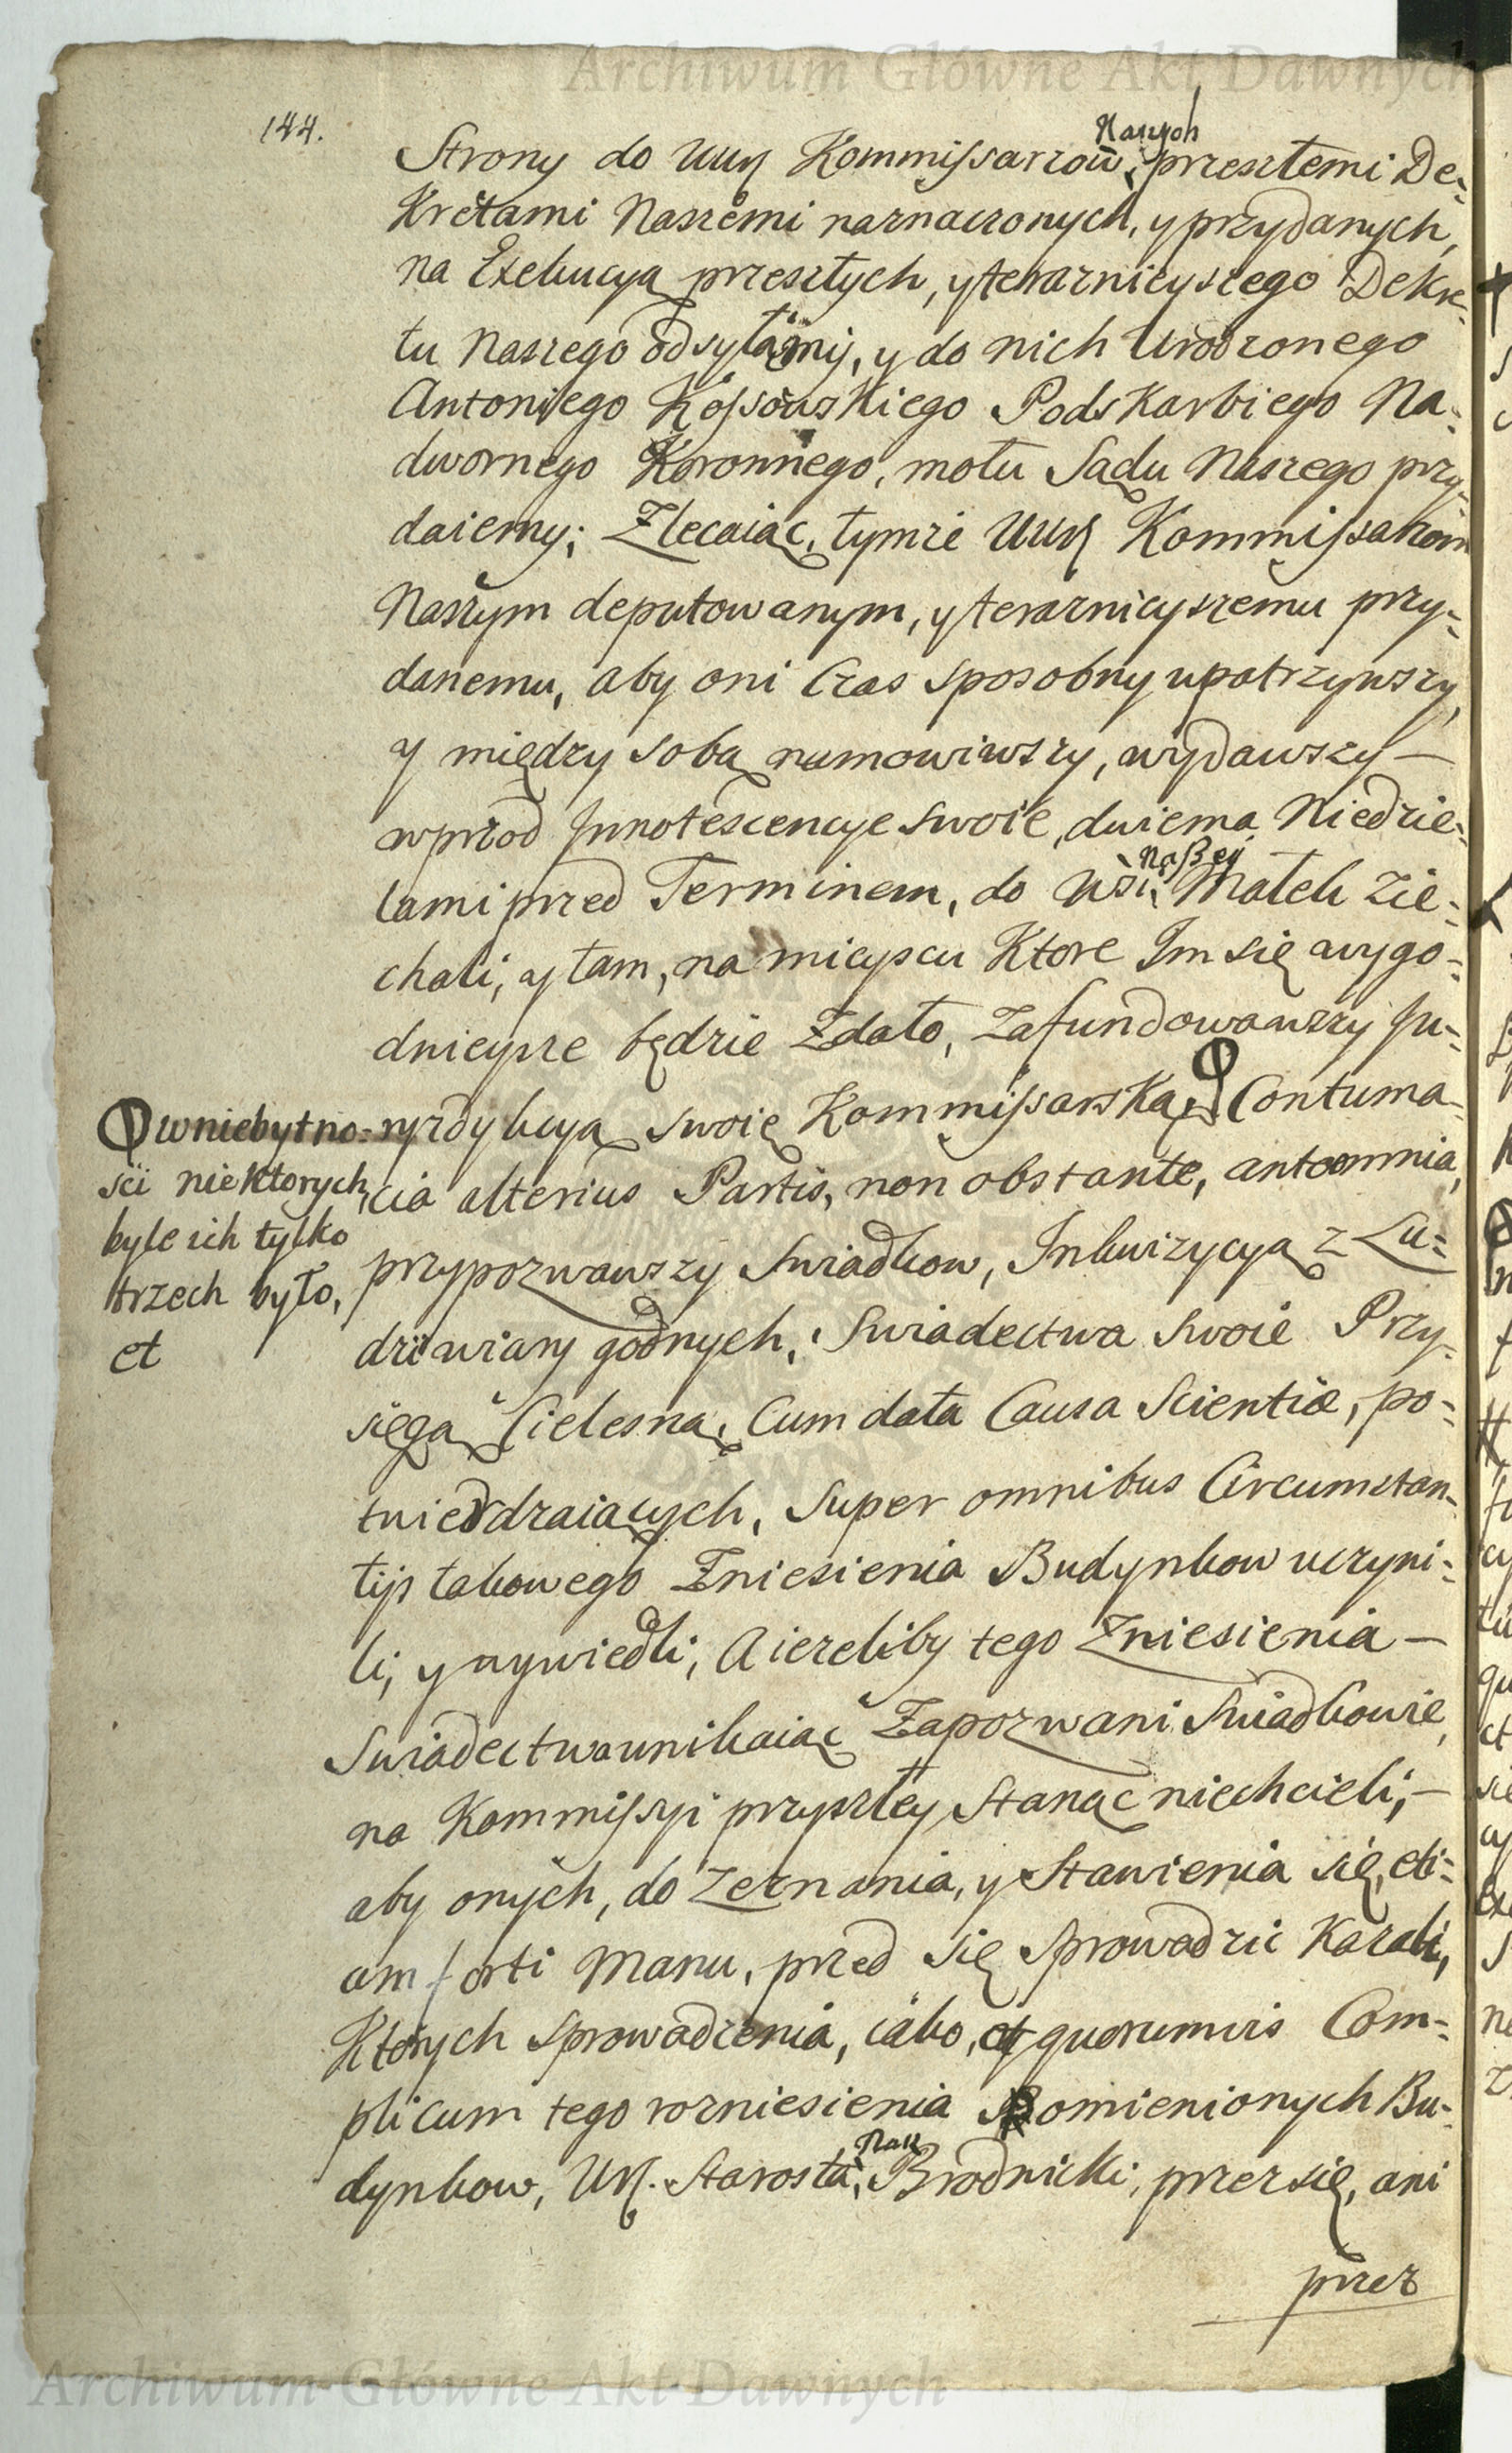 Archiwum Główne Akt Dawnych
144.
Naszych
Strony do UUr. Kommissarzow, przeszłemi De-
kretami Naszemi naznaczonych, y przydanych,
na Exekucyą przeszłych, y teraznieyszego Dekre-
tu Naszego odsyłamy, y do nich Urodzonego
Antoniego Kossowskiego Podskarbiego Na-
dwornego Koronnego, motu Sądu Naszego przy-
daiemy; Zlecaiąc, tymże UUr. Kommissarzom
Naszym deputowanym, y teraznieyszemu przy-
danemu, aby oni Czas sposobny upatrzywszy,
y między sobą namowiwszy, wydawszy —
wprzod Innotescencye swoie, dwiema Niedzie-
Naszey
lami przed Terminem, do Wsi, Małek zie-
chali, y tam, na mieyscu Ktore Im się wygo-
dnieysze będzie Zdało, Zafundowawszy Ju-
ryzdykcyą swoię Kommissarską, Contuma-
cia alterius Partis, non obstante, ante omnia,
przypozwawszy Swiadkow, Inkwizycyą z Lu-
dzi wiary godnych, Swiadectwa swoie Przy-
sięgą Cielesną, Cum data Causa Scientiæ, po-
twierdzaiących, Super omnibus Circumstan-
tijs takowego Zniesienia Budynkow uczyni-
li, y wywiedli, A ieżeliby tego Zniesienia —
Swiadectwa unikaiąc Zapozwani Swiadkowie,
na Kommissyi przyszłey Stanąc niechcieli, —
aby onych, do Zeznania, y Stawienia się, eti-
am forti Manu, przed się Sprowadzic Kazali,
Ktorych Sprowadzenia, iako, et quorumvis Com-
plicum tego rozniesienia Pomienionych Bu-
Nasz
dynkow, Ur. Starosta, Brodnicki, przez się, ani
przez
w niebytno-
sci niektorych,
byle ich tylko
trzech było,
et
Archiwum Główne Akt Dawnych